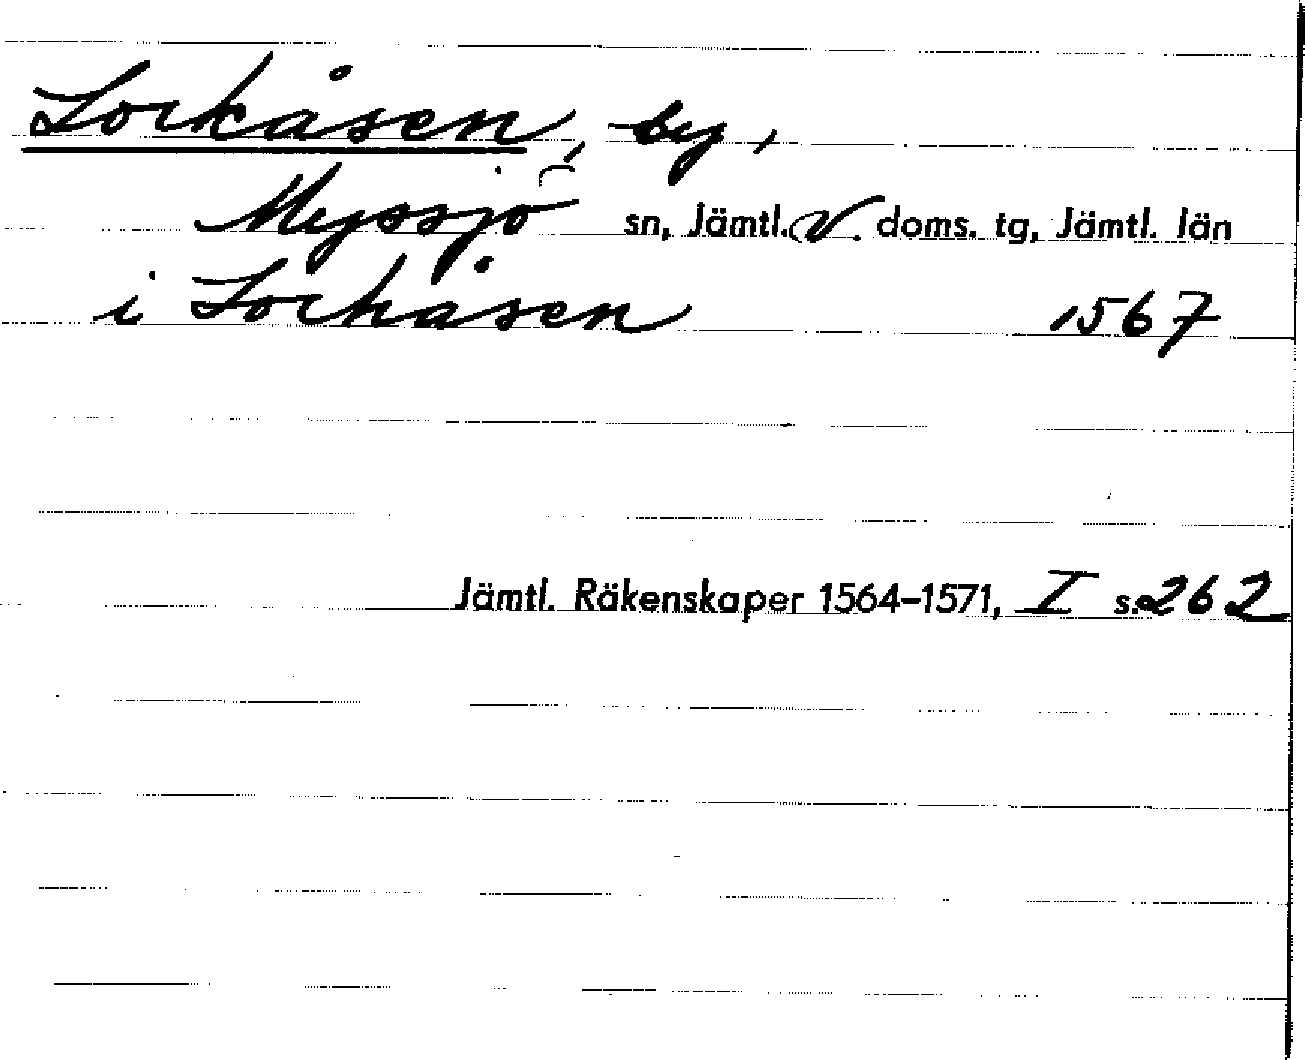 Lorkåsen, by,
Myssjö sn, Jämtl. V. doms. tg, Jämtl. län
i Lorkåsen 1567
Jämtl. Räkenskaper 1564–1571, I s. 262